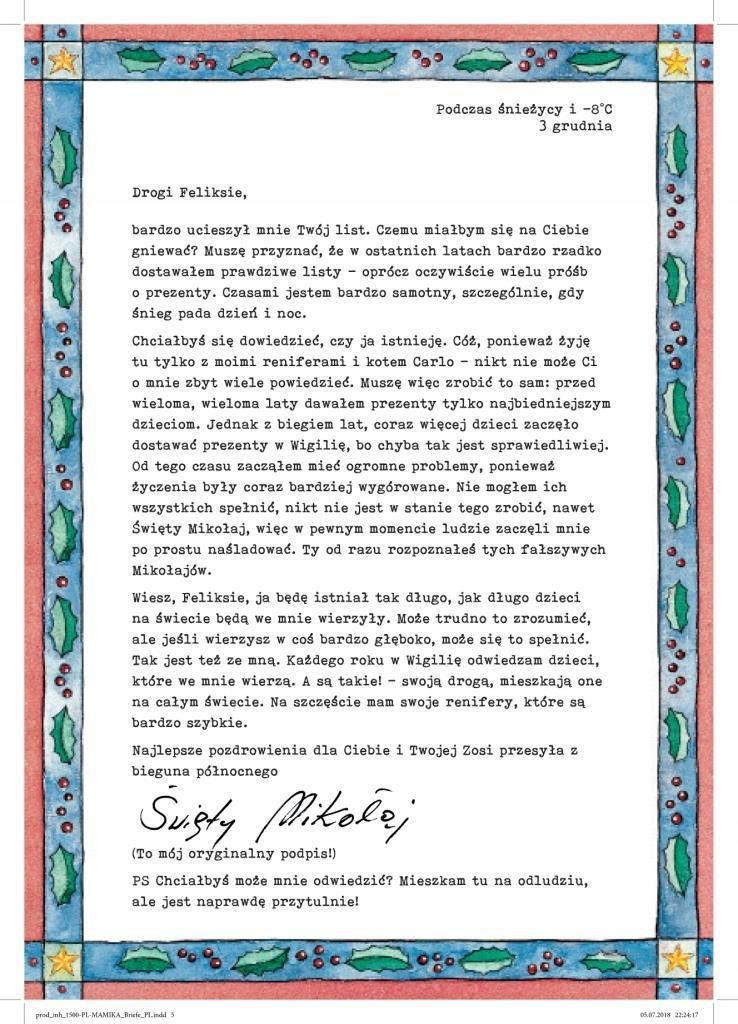 Podczas śnieżycy i -8°C
3 grudnia
Drogi Feliksie,
bardzo ucieszył mnie Twój list. Czemu miałbym się na Ciebie
gniewać? Muszę przyznać, że w ostatnich latach bardzo rzadko
dostawałem prawdziwe listy – oprócz oczywiście wielu próśb
o prezenty. Czasami jestem bardzo samotny, szczególnie, gdy
śnieg pada dzień i noc.
Chciałbyś się dowiedzieć, czy ja istnieję. Cóż, ponieważ żyję
tu tylko z moimi reniferami i kotem Carlo – nikt nie może Ci
o mnie zbyt wiele powiedzieć. Muszę więc zrobić to sam: przed
wieloma, wieloma laty dawałem prezenty tylko najbiedniejszym
dzieciom. Jednak z biegiem lat, coraz więcej dzieci zaczęło
dostawać prezenty w Wigilię, bo chyba tak jest sprawiedliwiej.
Od tego czasu zacząłem mieć ogromne problemy, ponieważ
życzenia były coraz bardziej wygórowane. Nie mogłem ich
wszystkich spełnić, nikt nie jest w stanie tego zrobić, nawet
Święty Mikołaj, więc w pewnym momencie ludzie zaczęli mnie
po prostu naśladować. Ty od razu rozpoznałeś tych fałszywych
Mikołajów.
Wiesz, Feliksie, ja będę istniał tak długo, jak długo dzieci
na świecie będą we mnie wierzyły. Może trudno to zrozumieć,
ale jeśli wierzysz w coś bardzo głęboko, może się to spełnić.
Tak jest też ze mną. Każdego roku w Wigilię odwiedzam dzieci,
które we mnie wierzą. A są takie! – swoją drogą, mieszkają one
na całym świecie. Na szczęście mam swoje renifery, które są
bardzo szybkie.
Najlepsze pozdrowienia dla Ciebie i Twojej Zosi przesyła z
bieguna północnego
Święty Mikołaj
(To mój oryginalny podpis!)
PS Chciałbyś może mnie odwiedzić? Mieszkam tu na odludziu,
ale jest naprawdę przytulnie!
prod_inh_1500-PL-MAMIKA_Briefe_PL.indd 5
05.07.2018 22:24:17